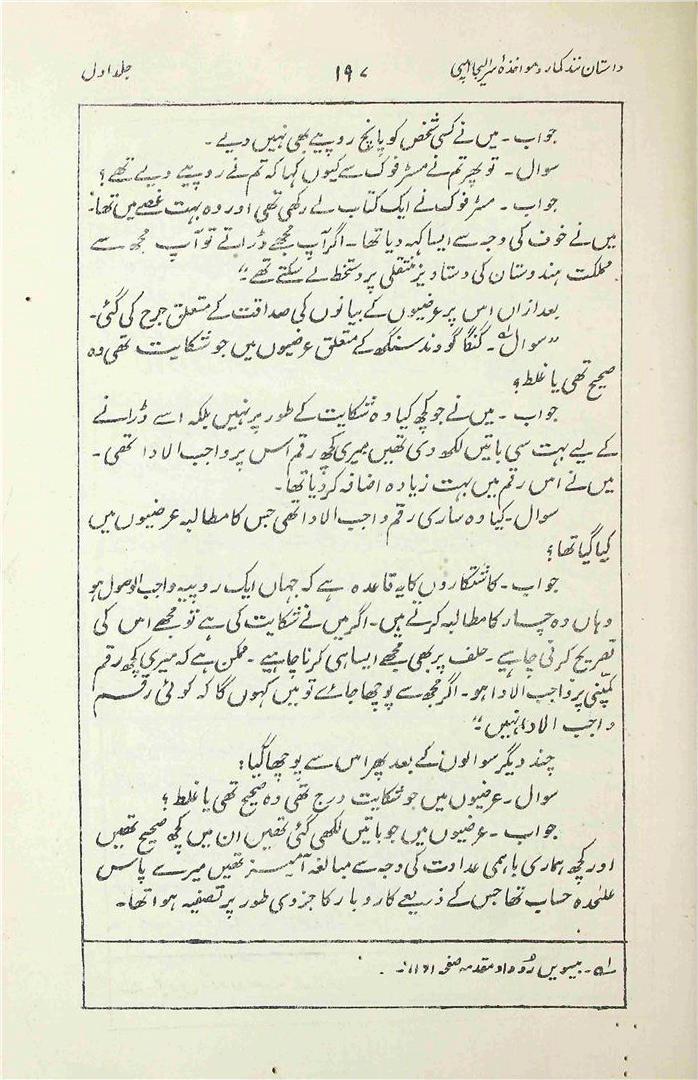 داستان نند کمار و مواخذۂ سر الیجا امپی ۱۹۷ جلد اول
جواب ۔ میں نے کسی شخص کو پانچ روپیے بھی نہیں دیے ۔
سوال ۔ تو پھر تم نے مسٹر فوک سے کیوں کہا کہ تم نے روپیے دیے تھے ؟
جواب ۔ مسٹر فوک نے ایک کتاب لے رکھی تھی اور وہ بہت غصے میں تھا۔
میں نے خوف کی وجہ سے ایسا کہہ دیا تھا ۔ اگر آپ مجھے ڈراتے تو آپ مجھ سے
مملکت ہندوستان کی دستاویز منتقلی پر دستخط لے سکتے تھے ۔"
بعد ازاں اس پر عرضیوں کے بیانوں کی صداقت کے متعلق جرح کی گئی ۔
"سوال ؎۱ ۔ گنگا گووند سنگھ کے متعلق عرضیوں میں جو شکایت تھی وہ
صحیح تھی یا غلط ؟
جواب ۔ میں نے جو کچھ کیا وہ شکایت کے طور پر نہیں بلکہ اسے ڈرانے
کے لیے بہت سی باتیں لکھ دی تھیں میری کچھ رقم اس پر واجب الادا تھی ۔
میں نے اس رقم میں بہت زیادہ اضافہ کر دیا تھا ۔
سوال ۔ کیا وہ ساری رقم واجب الادا تھی جس کا مطالبہ عرضیوں میں
کیا گیا تھا ؟
جواب ۔ کاشتکاروں کا یہ قاعدہ ہے کہ جہاں ایک روپیہ واجب الوصول ہو
وہاں وہ چار کا مطالبہ کرتے ہیں ۔ اگر میں نے شکایت کی ہے تو مجھے اس کی
تصریح کرنی چاہیے ۔ حلف پر بھی مجھے ایسا ہی کرنا چاہیے ۔ ممکن ہے کہ میری کچھ رقم
کمپنی پر واجب الادا ہو ۔ اگر مجھ سے پوچھا جائے تو میں کہوں گا کہ کوئی رقم
واجب الادا نہیں ۔"
چند دیگر سوالوں کے بعد پھر اس سے پوچھا گیا :
سوال ۔ عرضیوں میں جو شکایت درج تھی وہ صحیح تھی یا غلط ؟
جواب ۔ عرضیوں میں جو باتیں لکھی گئی تھیں ان میں کچھ صحیح تھیں
اور کچھ ہماری باہمی عداوت کی وجہ سے مبالغہ آمیز تھیں میرے پاس
علٰحدہ حساب تھا جس کے ذریعے کاروبار کا جزوی طور پر تصفیہ ہوا تھا ۔
؎۱ ۔ بیسویں روداد مقدمہ صفحہ ۱۱۶۱ ۔